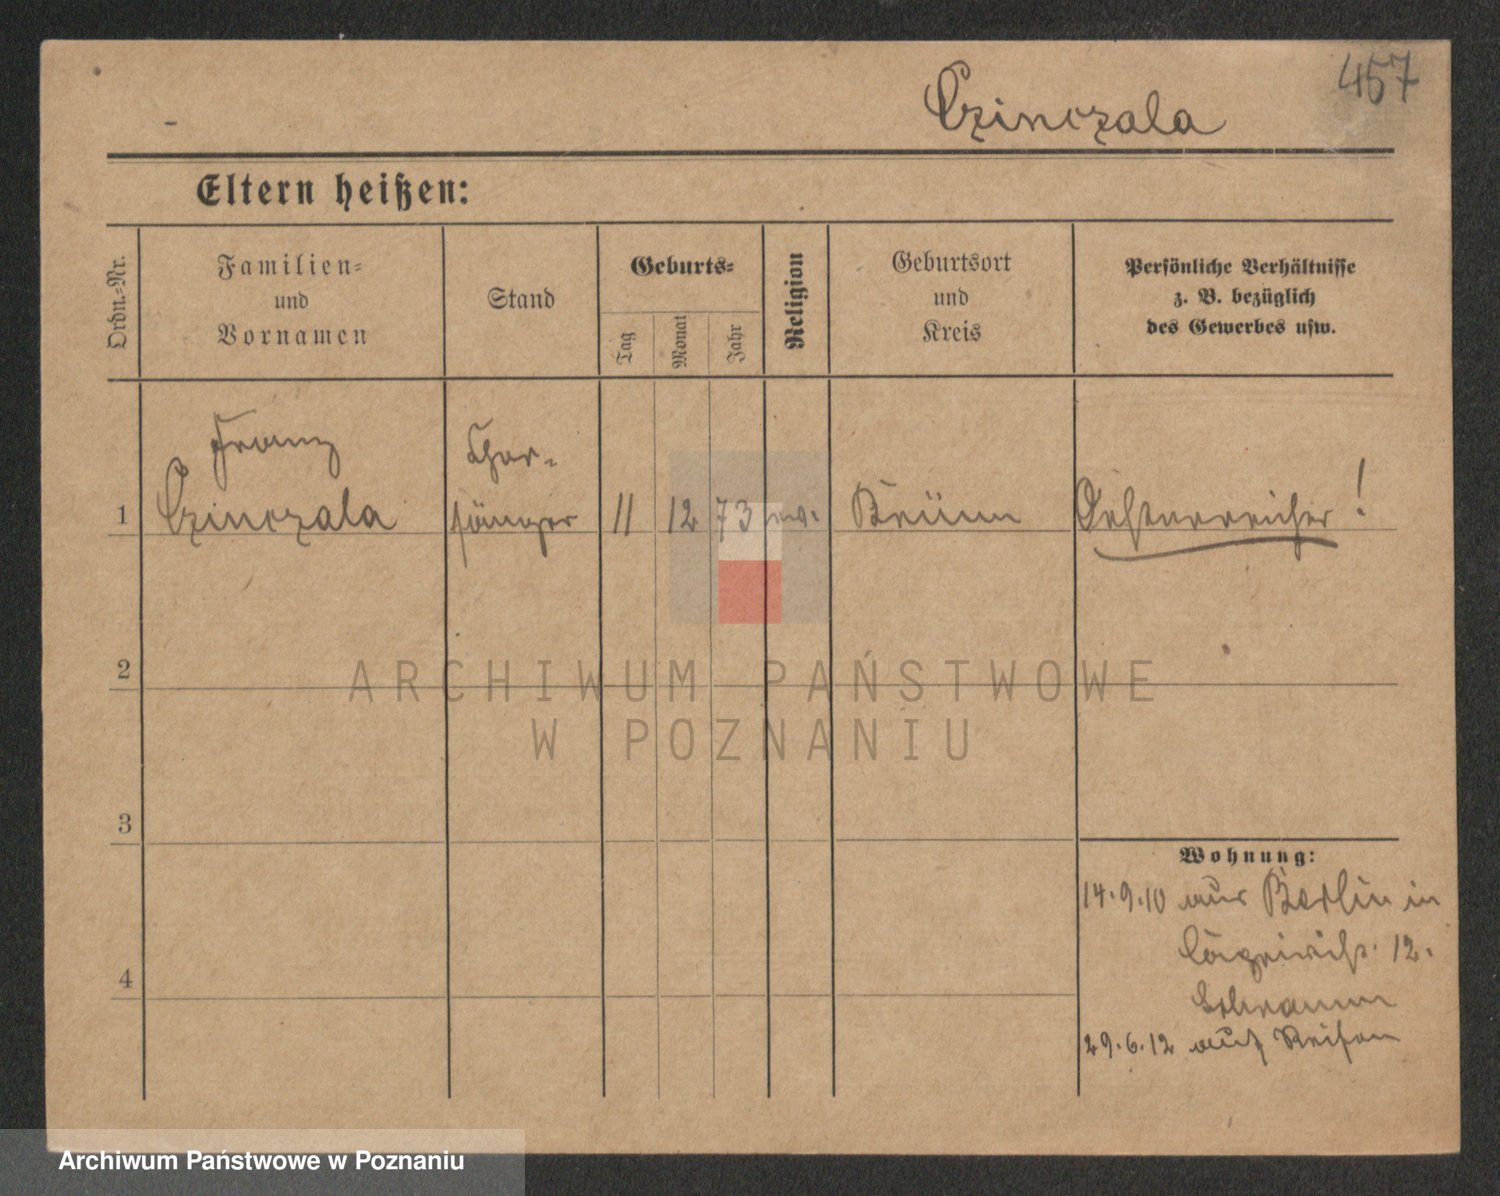 457
Czinczala
Eltern heißen:
Ordn.-Nr.
Familien-
und
Vornamen
Stand
Geburts-
Tag
Monat
Jahr
Religion
Geburtsort
und
Kreis
Persönliche Verhältnisse
z. B. bezüglich
des Gewerbes usw.
Franz
Chor-
1 Czinczala sänger 11 12 73 Brünn Oesterreicher!
2
3
4
Wohnung:
14.9.10 aus Berlin in
12.
29.6.12 auf Reisen
ARCHIWUM PAŃSTWOWE
W POZNANIU
Archiwum Państwowe w Poznaniu